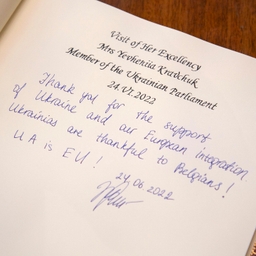 Visit of Her Excellency
Mrs Yevheniia Kravchuk
Member of the Ukrainian Parliament
24.VI.2022
Thank you for the support
of Ukraine and our European integration
Ukrainias are thankful to Belgians!
UA is EU!
24.06.2022